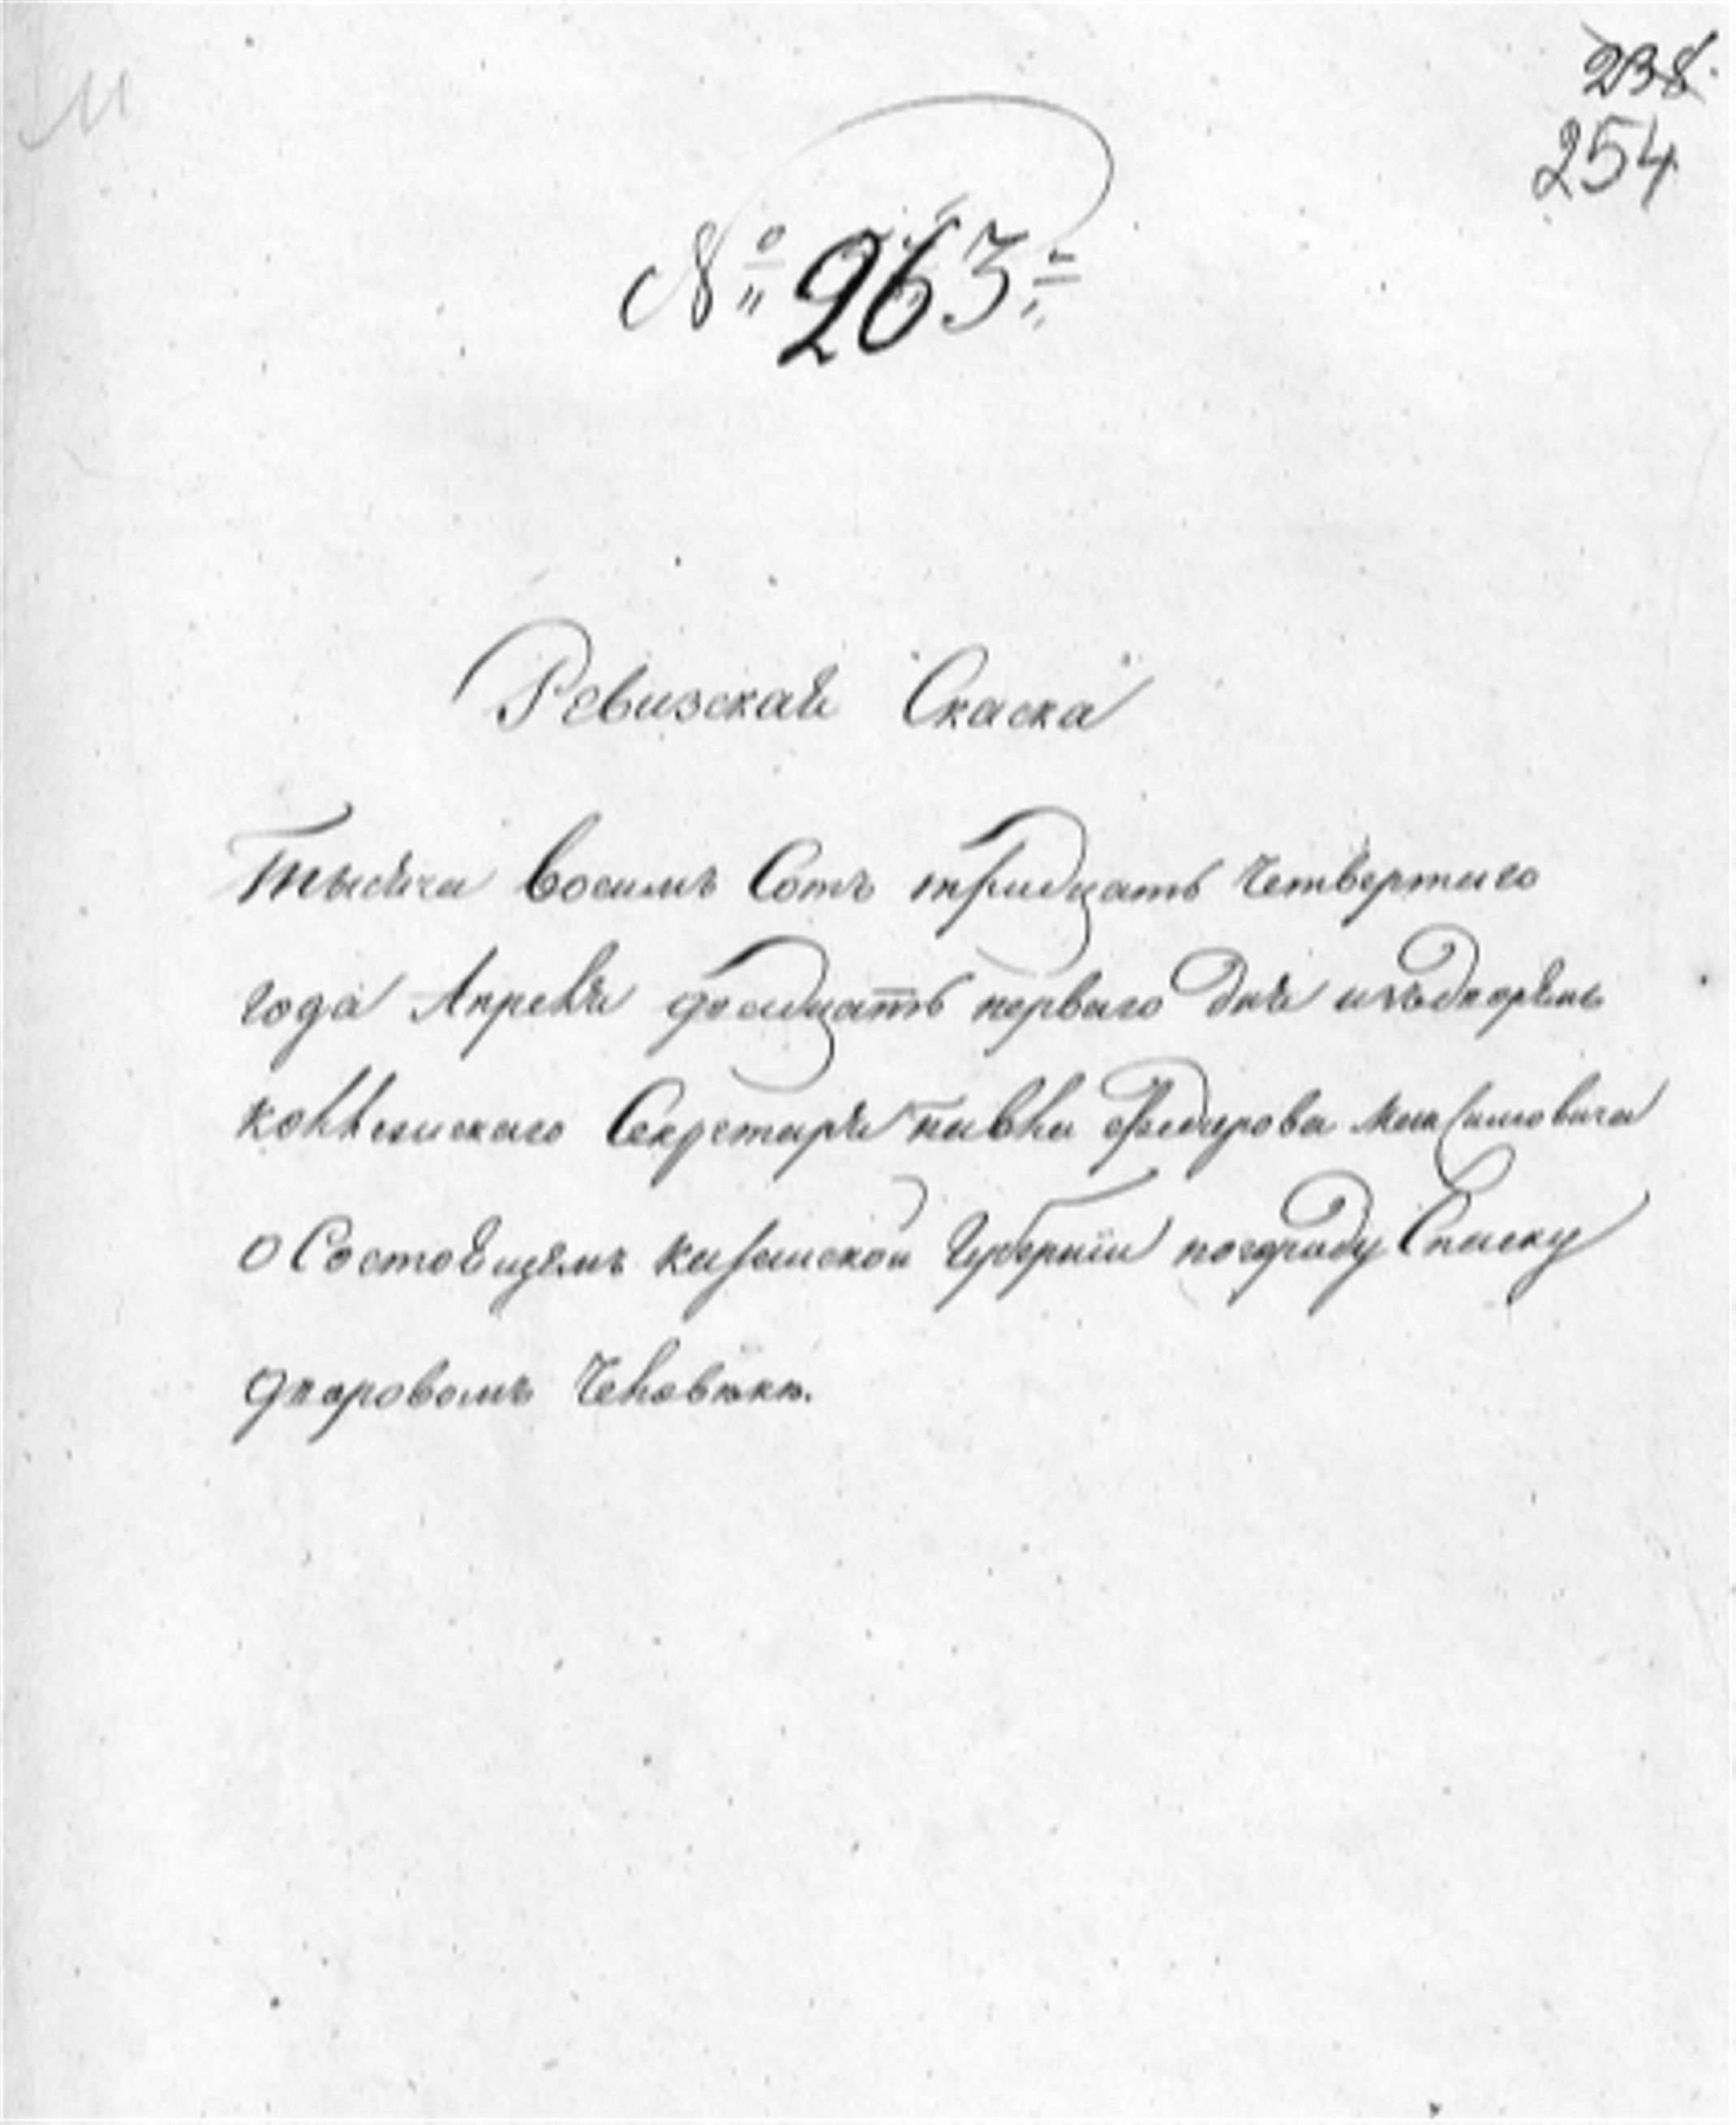 238.
254
№ 263
Ревизская Скаска
Тысяча Восимъ Сотъ тридцать Четвертаго
года Апреля двадцать перваго дня изъдворянъ
коллежскаго Секретаря павла Федорова Максимовича
о Состоящемъ казанской Губернїи погораду Спаску
дворовомъ Человѣкѣ.